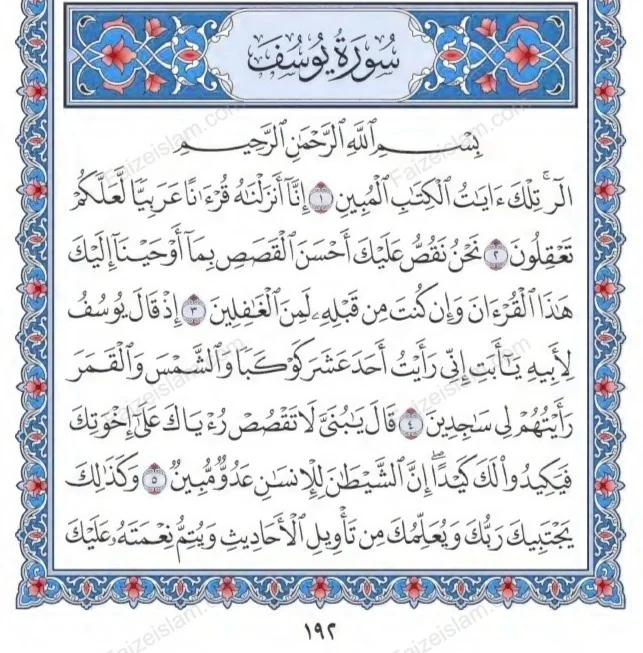 سُورَةُ يُوسُفَ
بِسْمِ ٱللَّهِ ٱلرَّحْمَٰنِ ٱلرَّحِيمِ
الٓرۚ تِلْكَ ءَايَٰتُ ٱلْكِتَٰبِ ٱلْمُبِينِ ١ إِنَّآ أَنزَلْنَٰهُ قُرْءَٰنًا عَرَبِيًّا لَّعَلَّكُمْ
تَعْقِلُونَ ٢ نَحْنُ نَقُصُّ عَلَيْكَ أَحْسَنَ ٱلْقَصَصِ بِمَآ أَوْحَيْنَآ إِلَيْكَ
هَٰذَا ٱلْقُرْءَانَ وَإِن كُنتَ مِن قَبْلِهِۦ لَمِنَ ٱلْغَٰفِلِينَ ٣ إِذْ قَالَ يُوسُفُ
لِأَبِيهِ يَٰٓأَبَتِ إِنِّي رَأَيْتُ أَحَدَ عَشَرَ كَوْكَبًا وَٱلشَّمْسَ وَٱلْقَمَرَ
رَأَيْتُهُمْ لِي سَٰجِدِينَ ٤ قَالَ يَٰبُنَيَّ لَا تَقْصُصْ رُءْيَاكَ عَلَىٰٓ إِخْوَتِكَ
فَيَكِيدُوا۟ لَكَ كَيْدًاۖ إِنَّ ٱلشَّيْطَٰنَ لِلْإِنسَٰنِ عَدُوٌّ مُّبِينٌ ٥ وَكَذَٰلِكَ
يَجْتَبِيكَ رَبُّكَ وَيُعَلِّمُكَ مِن تَأْوِيلِ ٱلْأَحَادِيثِ وَيُتِمُّ نِعْمَتَهُۥ عَلَيْكَ
١٩٢
Faizeislam.com